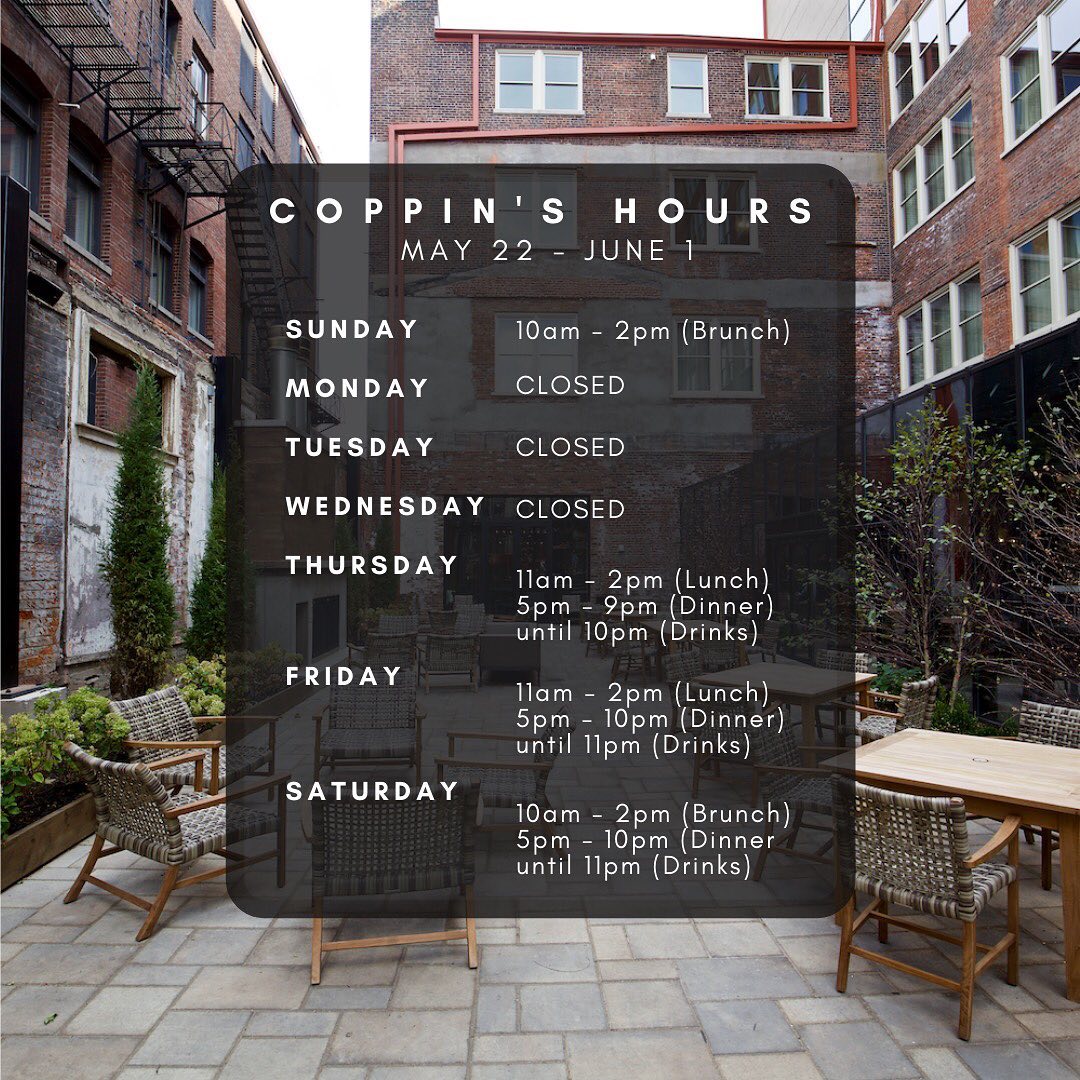 COPPIN'S HOURS
MAY 22 - JUNE 1
SUNDAY 10am - 2pm (Brunch)
MONDAY CLOSED
TUESDAY CLOSED
WEDNESDAY CLOSED
THURSDAY
11am - 2pm (Lunch)
5pm - 9pm (Dinner)
until 10pm (Drinks)
FRIDAY
11am - 2pm (Lunch)
5pm - 10pm (Dinner)
until 11pm (Drinks)
SATURDAY
10am - 2pm (Brunch)
5pm - 10pm (Dinner
until 11pm (Drinks)